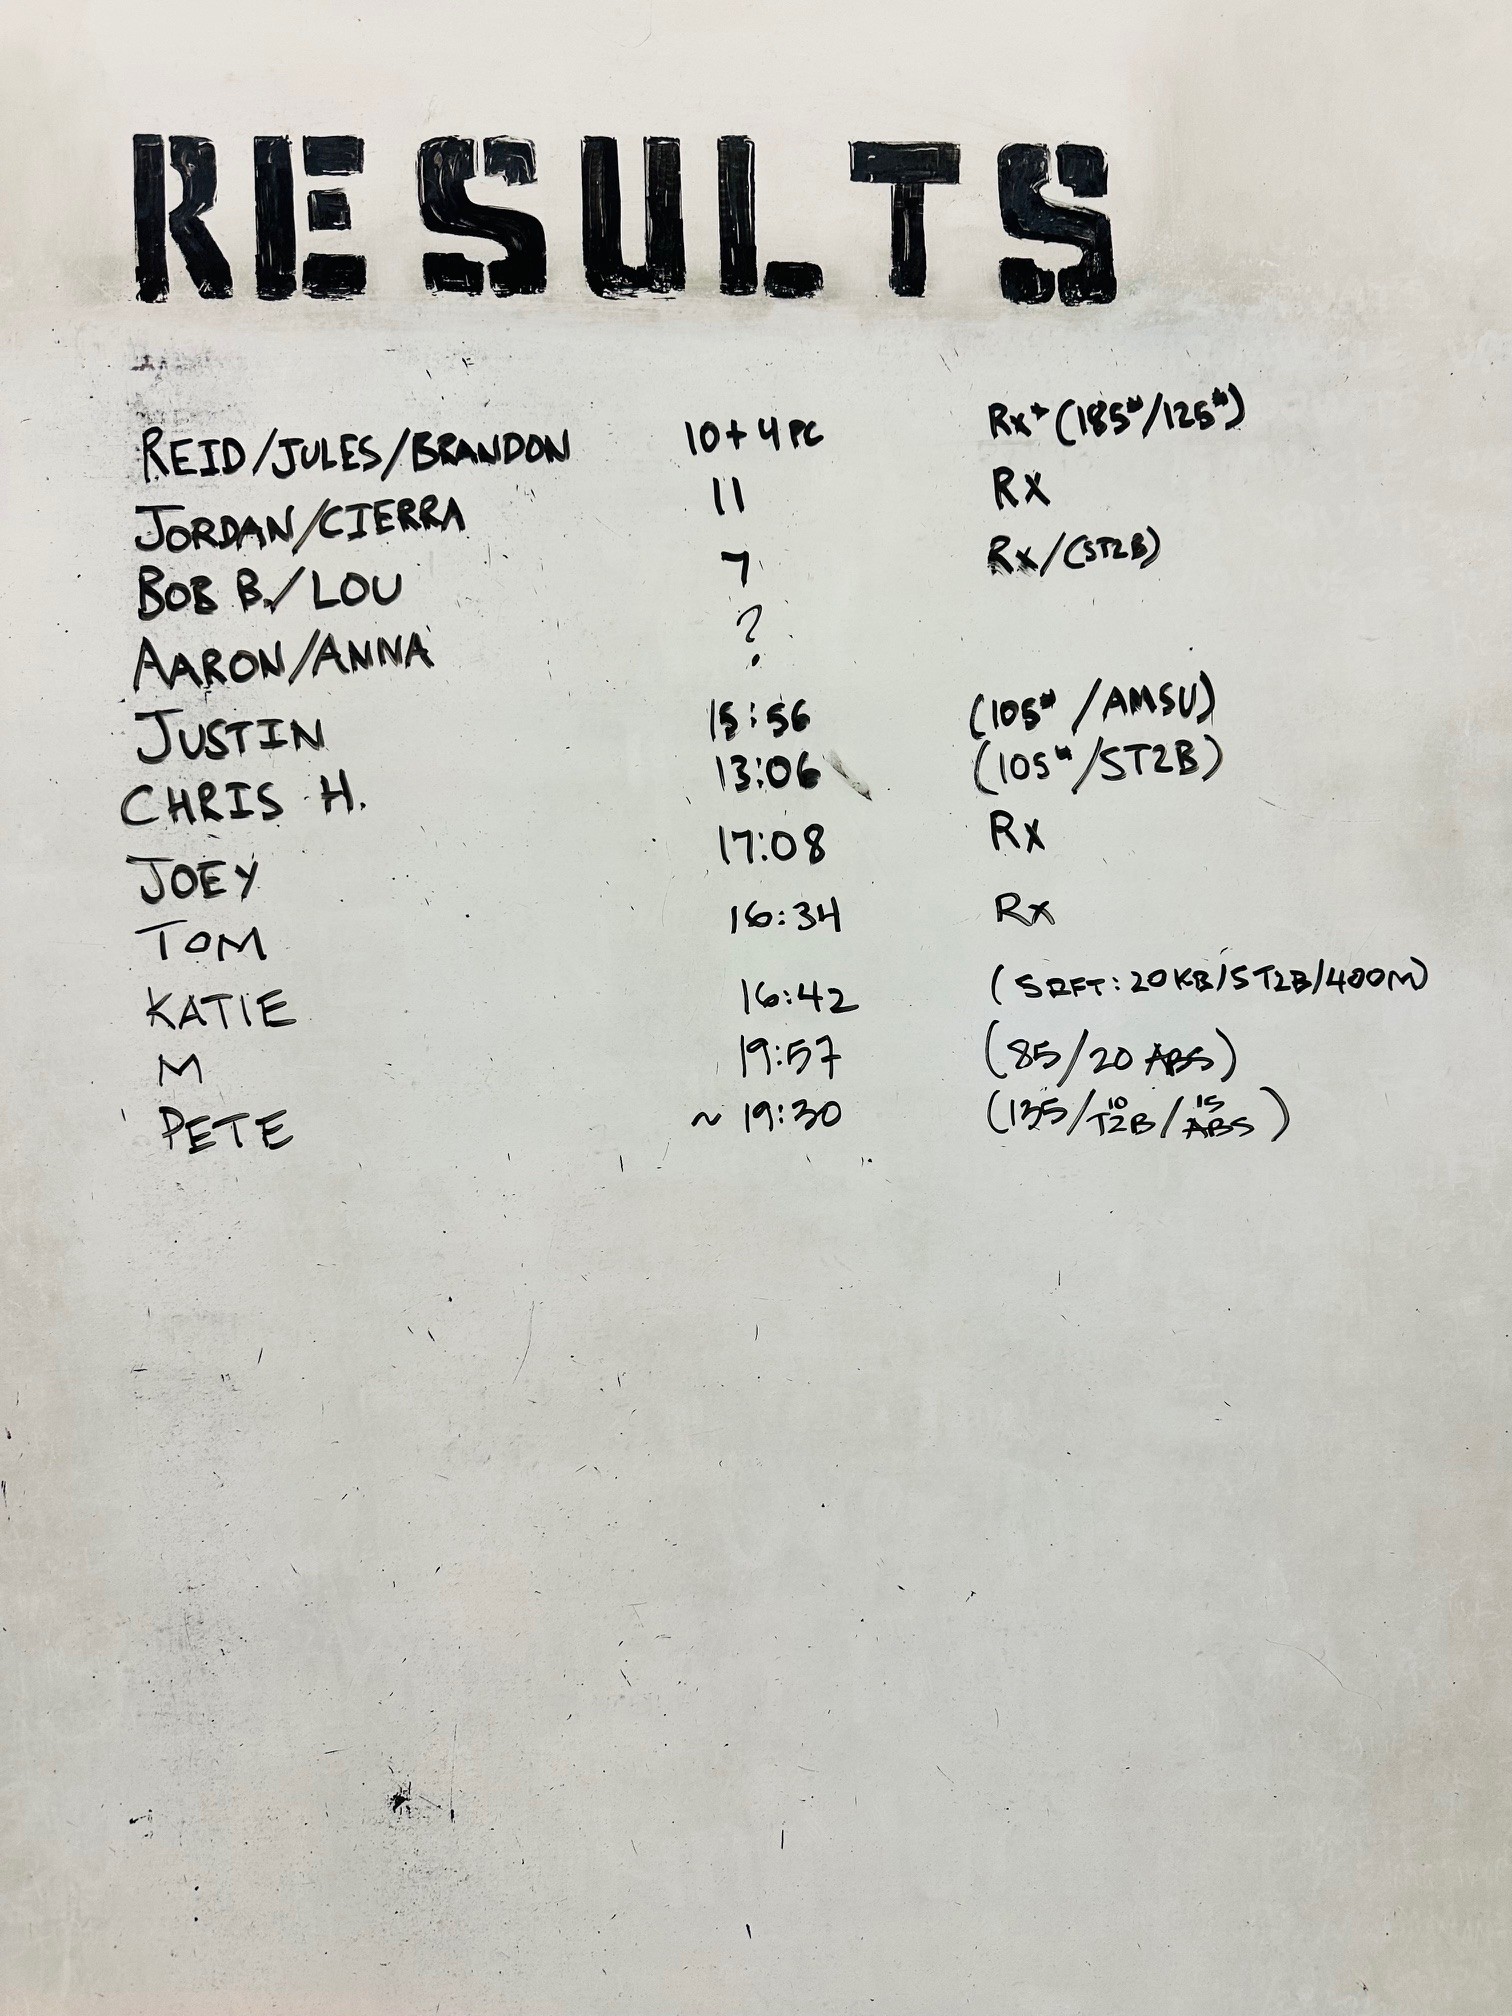 RESULTS
REID/JULES/BRANDON 10+4PC Rx+ (185#/125#)
JORDAN/CIERRA 11 Rx
BOB B./LOU 7 Rx/(ST2B)
AARON/ANNA ?
JUSTIN 15:56 (105#/AMSU)
CHRIS H. 13:06 (105#/ST2B)
JOEY 17:08 Rx
TOM 16:34 Rx
KATIE 16:42 (5RFT:20KB/5T2B/400M)
M 19:57 (85/20 ABS)
PETE ~19:30 (135/10 T2B/15 ABS)